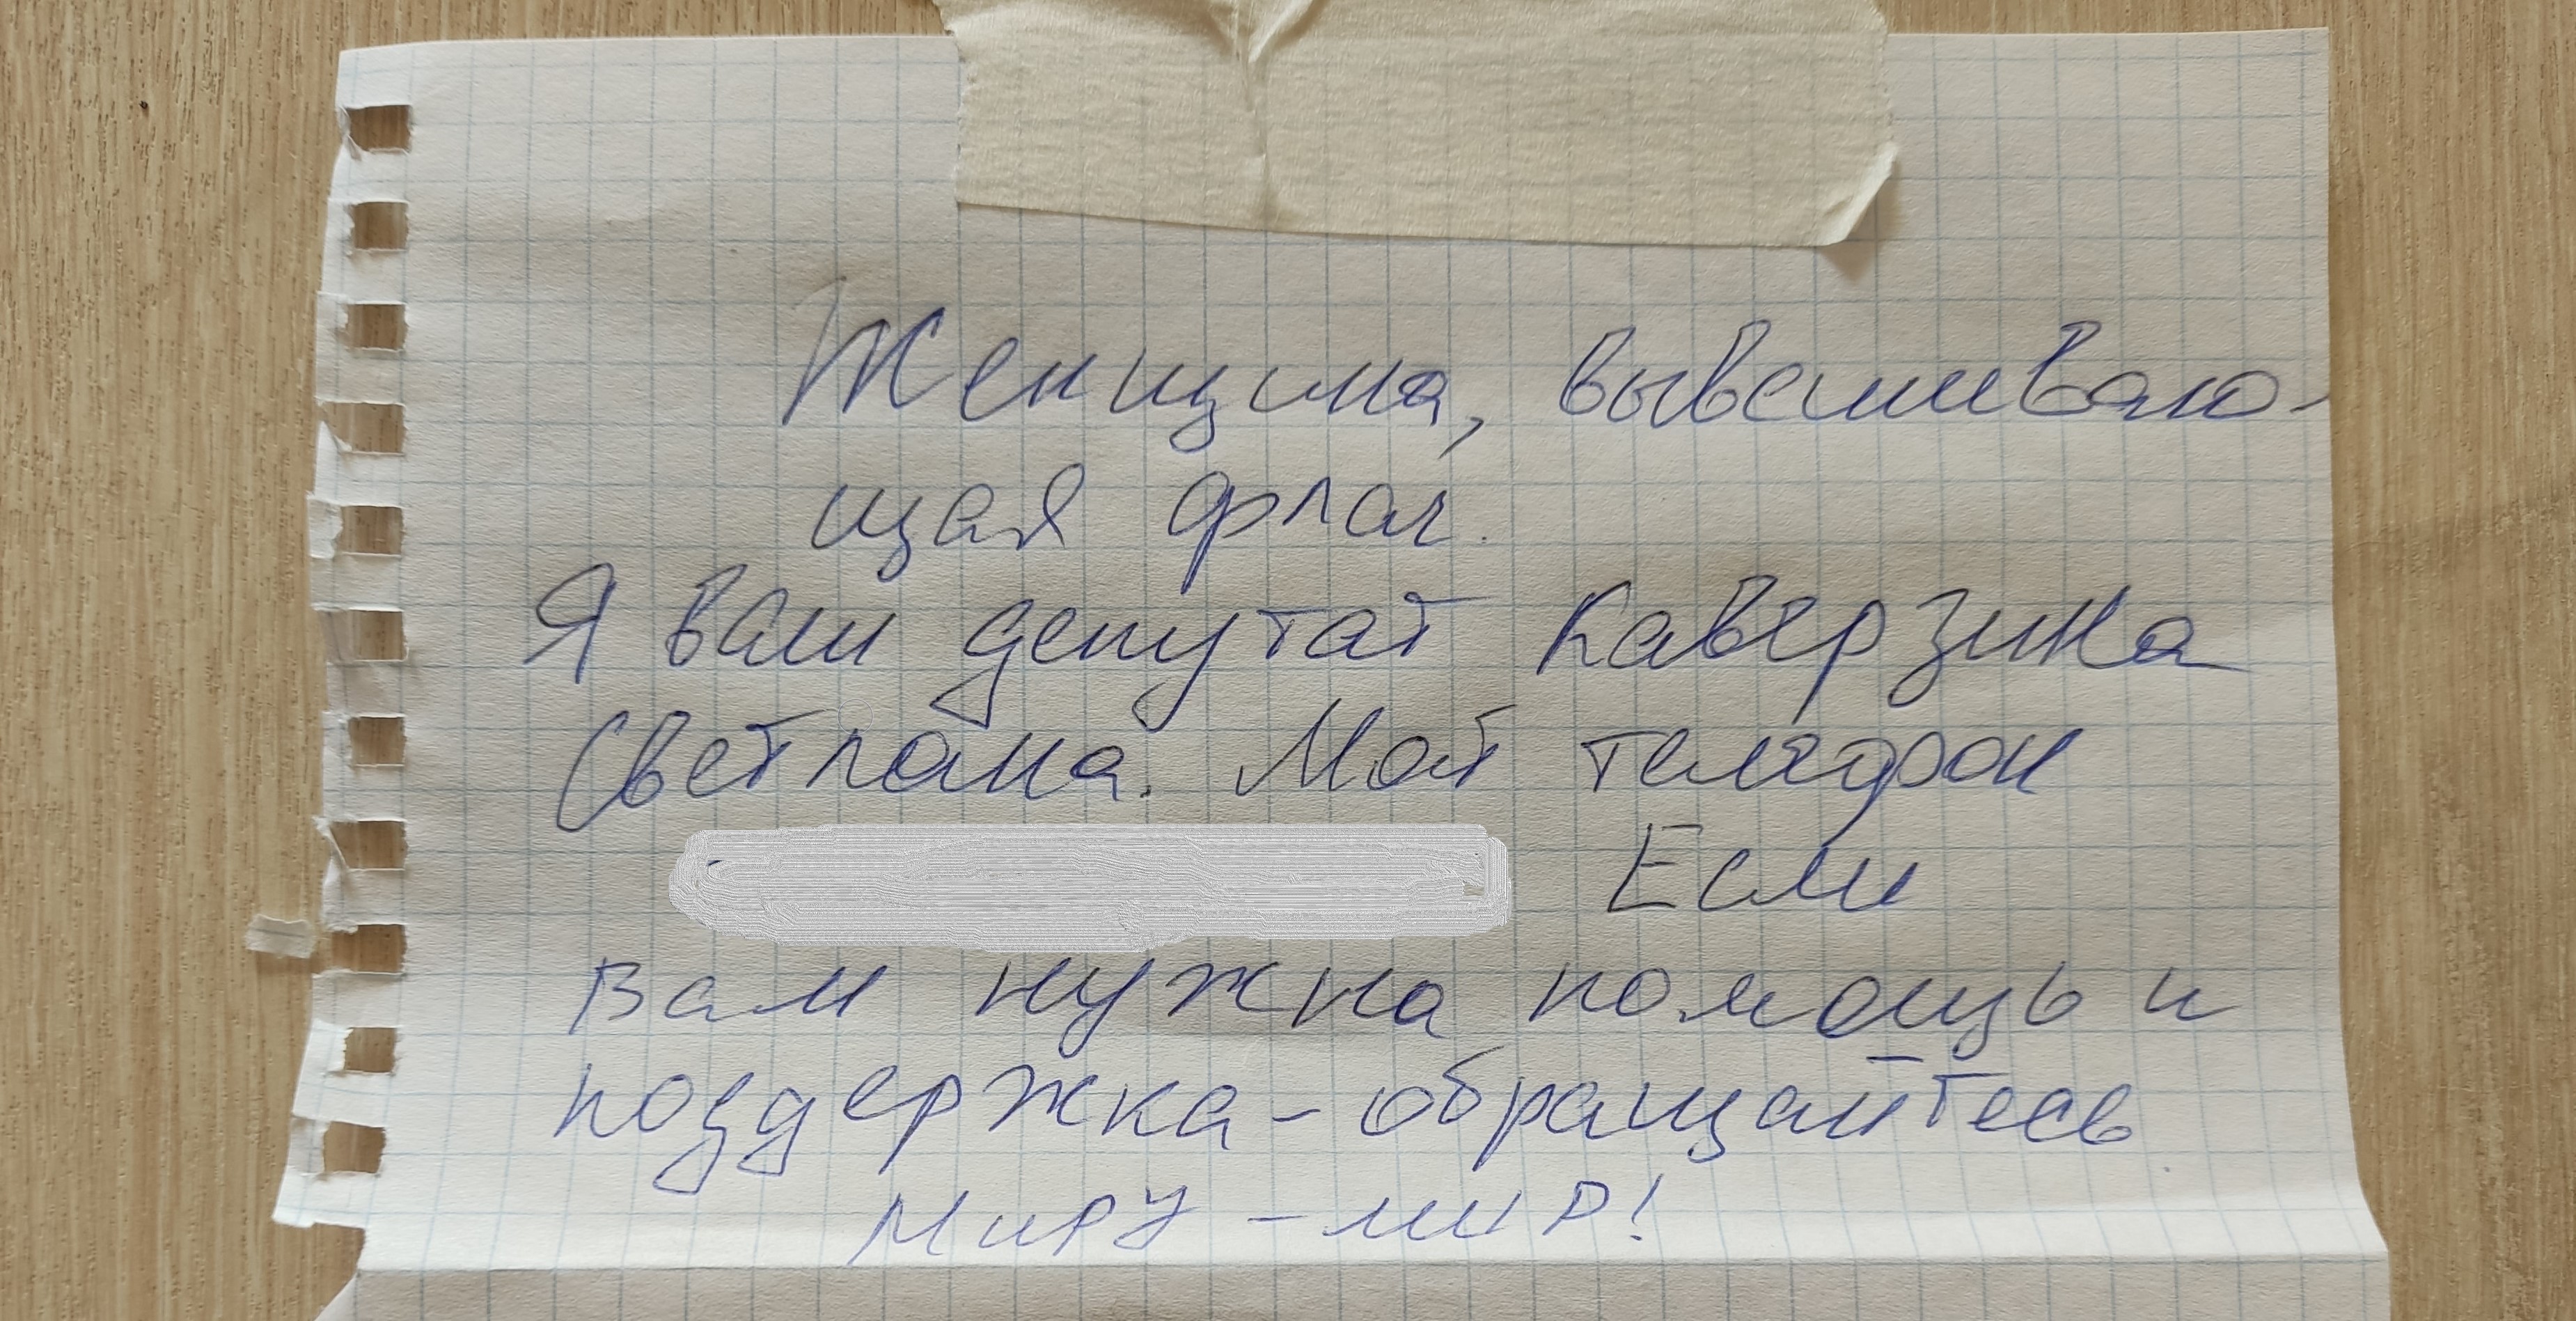 Женщина, вывешиваю-
щая флаг.
Я ваш депутат Каверзина
Светлана. Мой телефон
Если
Вам нужна помощь и
поддержка - обращайтесь
Миру - мир!